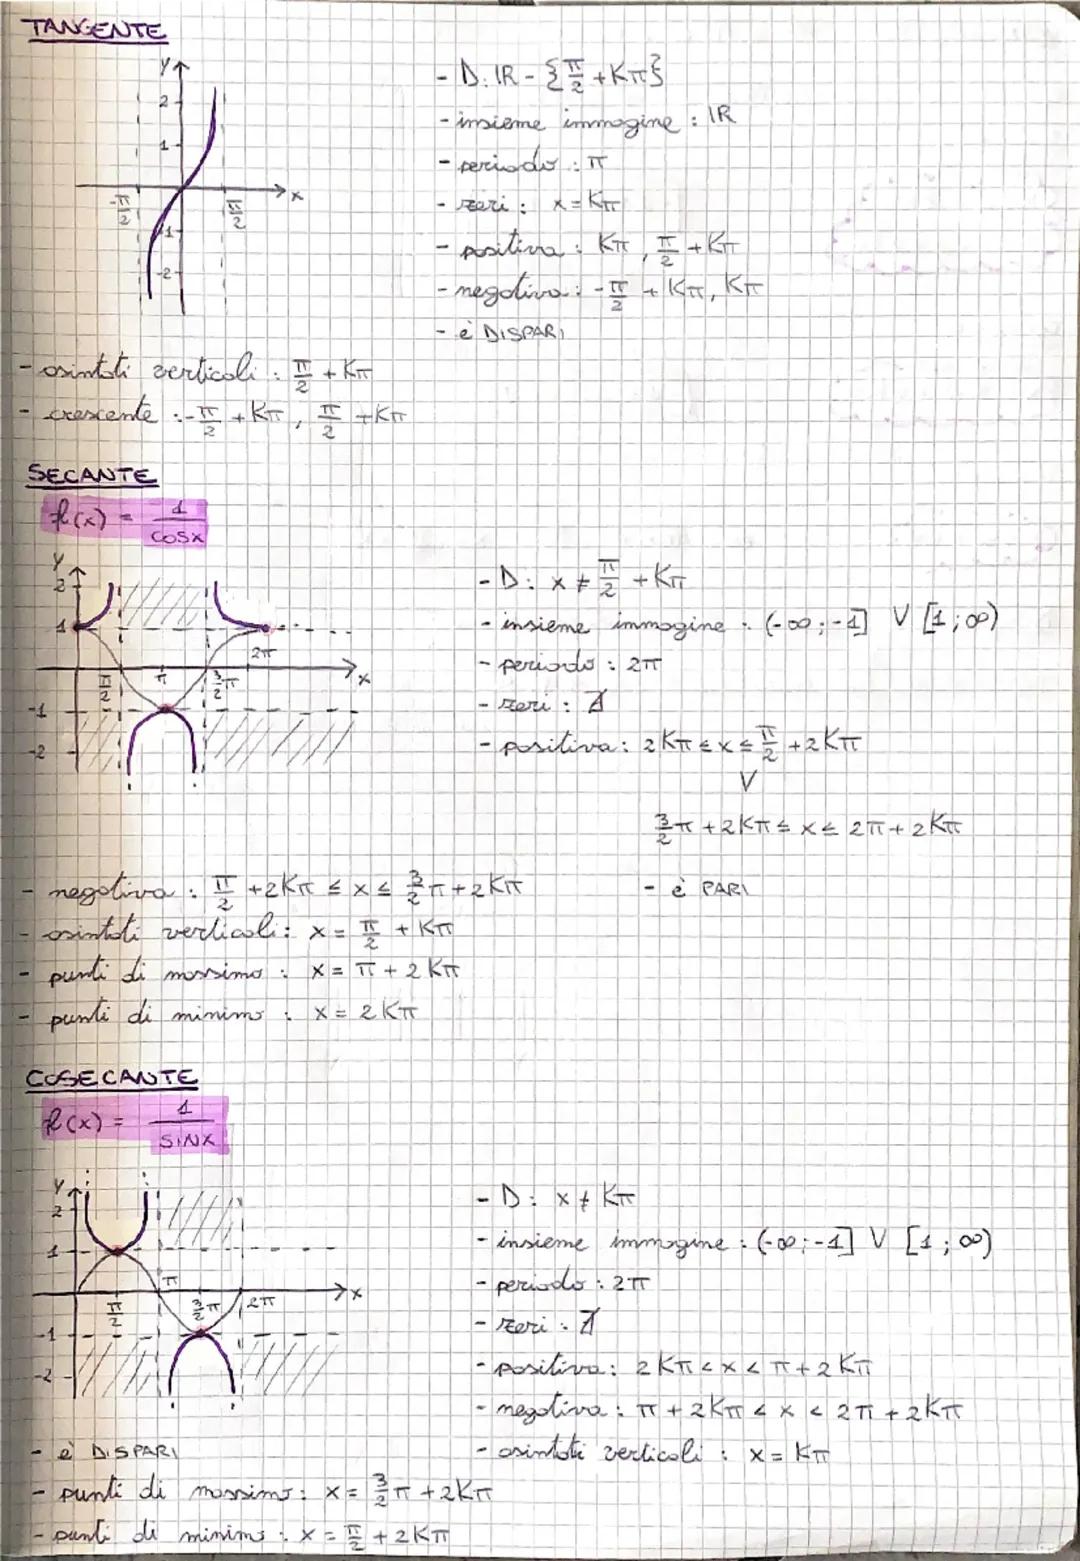 TANGENTE
y
2
1
-π/2
π/2
x
-1
-2
- D: IR - {π/2 + Kπ}
- insieme immagine : IR
- periodo : π
- zeri : x = Kπ
- positiva : Kπ , π/2 + Kπ
- negativa : -π/2 + Kπ, Kπ
- è DISPARI
- asintoti verticali : π/2 + Kπ
- crescente : -π/2 + Kπ , π/2 + Kπ
SECANTE
f(x) = 1/COSX
y
2
1
2π
π/2
π
3/2 π
x
-1
-2
- D: x ≠ π/2 + Kπ
- insieme immagine : (-∞ ; -1] V [1 ; ∞)
- periodo : 2π
- zeri : ∄
- positiva : 2Kπ ≤ x ≤ π/2 + 2Kπ
V
3/2 π + 2Kπ ≤ x ≤ 2π + 2Kπ
- negativa : π/2 + 2Kπ ≤ x ≤ 3/2 π + 2Kπ
- è PARI
- asintoti verticali : x = π/2 + Kπ
- punti di massimo : x = π + 2Kπ
- punti di minimo : x = 2Kπ
COSECANTE
f(x) = 1/SINX
y
2
1
π
π/2
3/2 π
2π
x
-1
-2
- D : x ≠ Kπ
- insieme immagine : (-∞ ; -1] V [1 ; ∞)
- periodo : 2π
- zeri : ∄
- positiva : 2Kπ < x < π + 2Kπ
- negativa : π + 2Kπ < x < 2π + 2Kπ
- è DISPARI
- asintoti verticali : x = Kπ
- punti di massimo : x = 3/2 π + 2Kπ
- punti di minimo : x = π/2 + 2Kπ